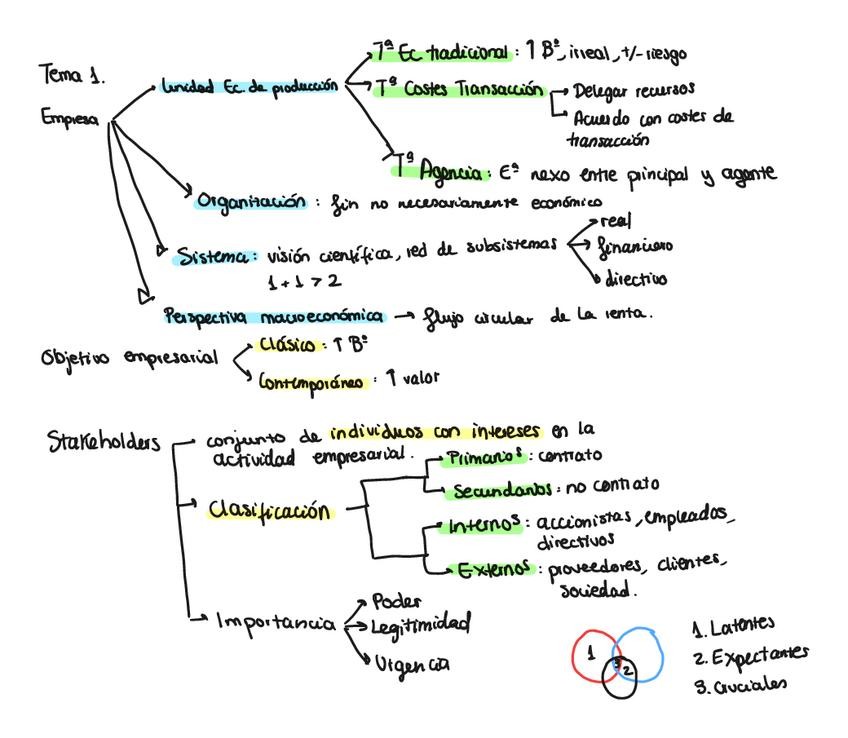 Tema 1.
Empresa
Unidad Ec. de producción
Tª Ec tradicional: ↑ Bº, irreal, +/- riesgo
Tª Costes Transacción
Delegar recursos
Acuerdo con costes de
transacción
Tª Agencia: Eª nexo entre principal y agente
Organización: fin no necesariamente económico
Sistema: visión científica, red de subsistemas
1 + 1 > 2
real
financiero
directivo
Perspectiva macroeconómica → flujo circular de la renta.
Objetivo empresarial
Clásico: ↑ Bº
Contemporáneo: ↑ valor
Stakeholders
conjunto de individuos con intereses en la
actividad empresarial.
Clasificación
Primarios: contrato
Secundarios: no contrato
Internos: accionistas, empleados,
directivos
Externos: proveedores, clientes,
sociedad.
Importancia
Poder
Legitimidad
Urgencia
1
3
2
1. Latentes
2. Expectantes
3. Cruciales